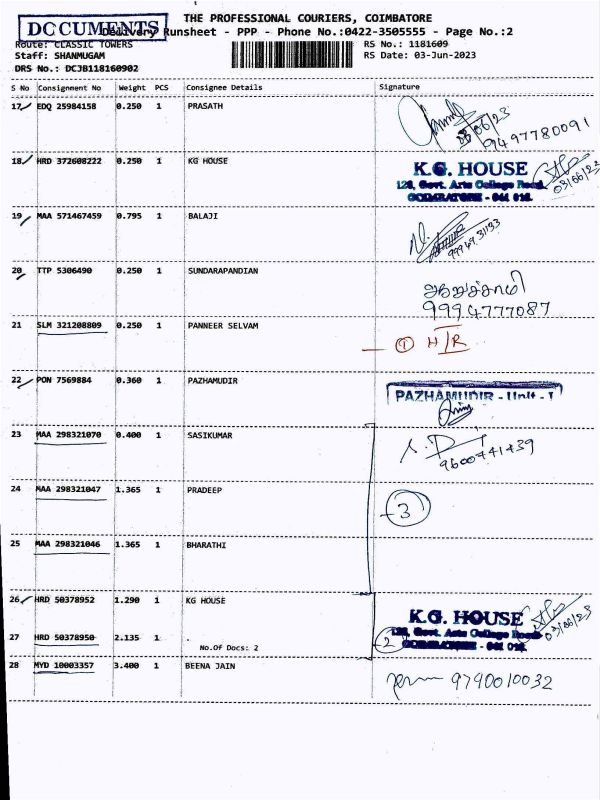 THE PROFESSIONAL COURIERS, COIMBATORE
DOCUMENTS
Delivery Runsheet - PPP - Phone No.:0422-3505555 - Page No.:2
Route: CLASSIC TOWERS RS No.: 1181609
Staff: SHANMUGAM RS Date: 03-Jun-2023
DRS No.: DCJB118160902
S No Consignment No Weight PCS Consignee Details Signature
17 EDQ 25984158 0.250 1 PRASATH
03/06/23
9497780091
18 HRD 372608222 0.250 1 KG HOUSE
K.G. HOUSE
128, Govt. Arts College Road,
COIMBATORE - 641 018.
03/06/23
19 MAA 571467459 0.795 1 BALAJI
20 TTP 5306490 0.250 1 SUNDARAPANDIAN
9994777087
21 SLM 321208809 0.250 1 PANNEER SELVAM
1 H/R
22 PON 7569884 0.360 1 PAZHAMUDIR
PAZHAMUDIR - Unit - 1
23 MAA 298321070 0.400 1 SASIKUMAR
9600741439
24 MAA 298321047 1.365 1 PRADEEP
3
25 MAA 298321046 1.365 1 BHARATHI
26 HRD 50378952 1.290 1 KG HOUSE
K.G. HOUSE
128, Govt. Arts College Road,
COIMBATORE - 641 018.
03/06/23
27 HRD 50378950 2.135 1 .
No.Of Docs: 2
2
28 MYD 10003357 3.400 1 BEENA JAIN
9790010032